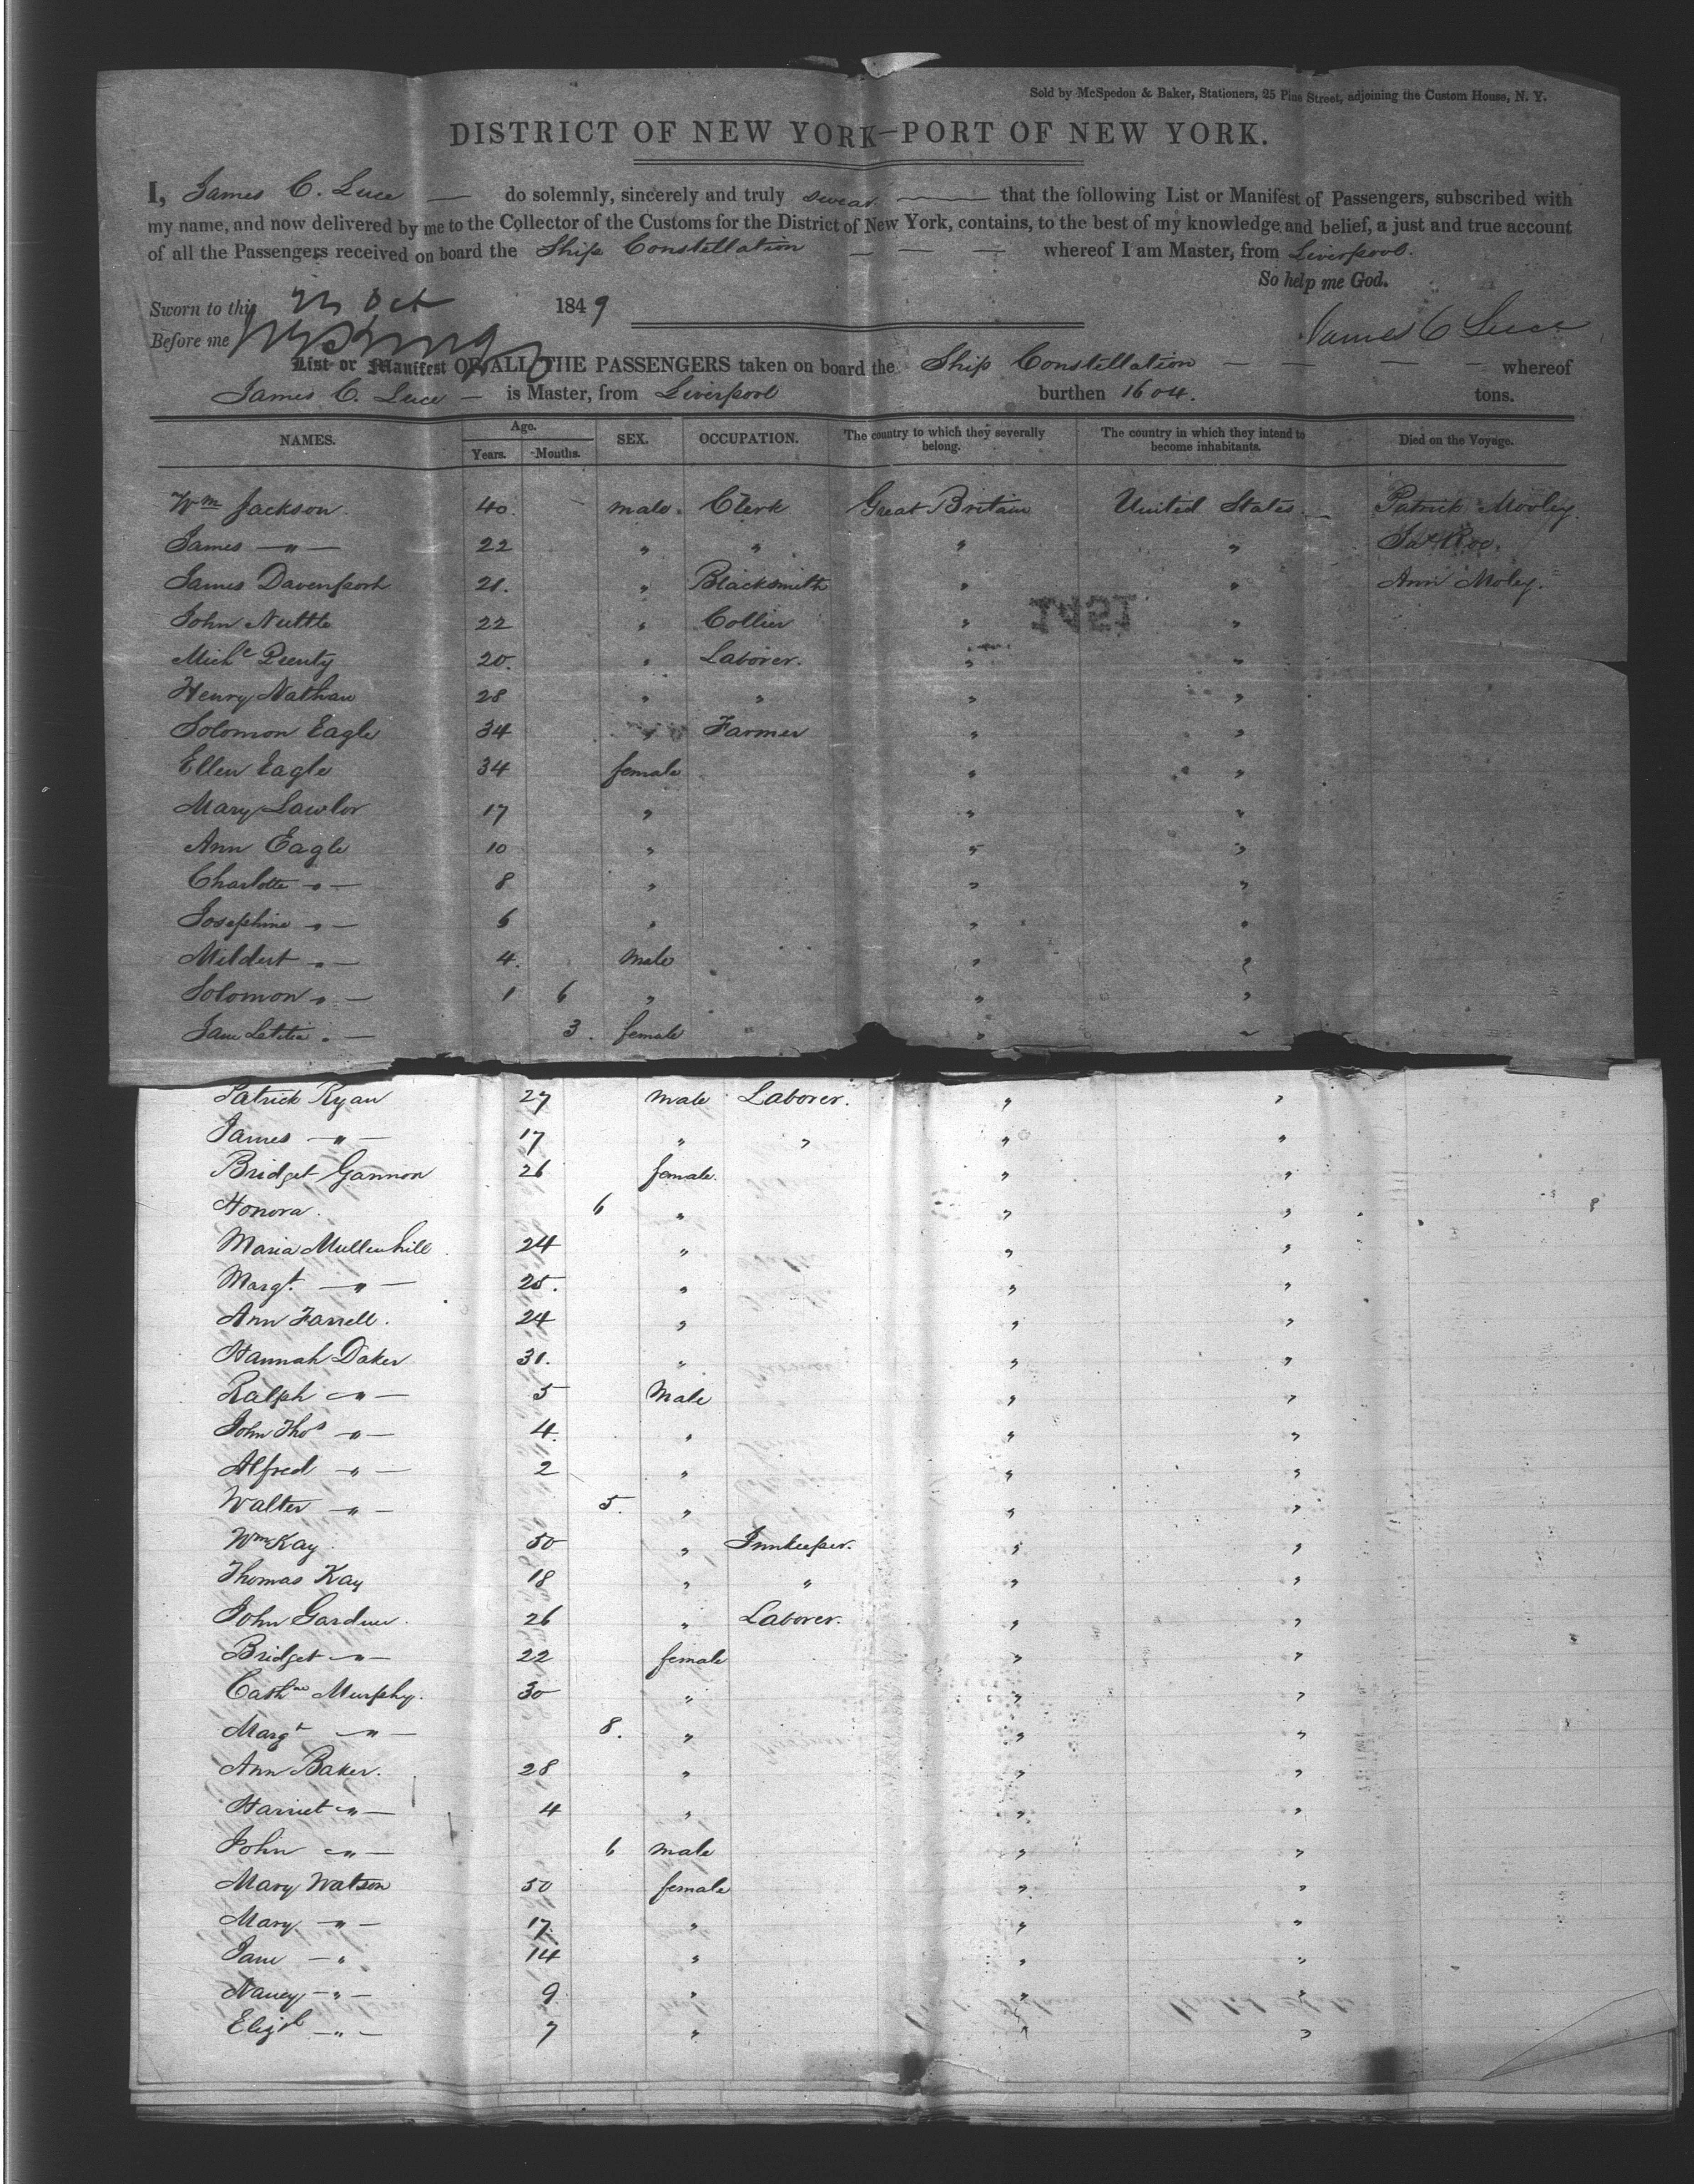 Sold by McSpedon & Baker, Stationers, 25 Pine Street, adjoining the Custom House, N. Y.
DISTRICT OF NEW YORK—PORT OF NEW YORK.
I, James C. Luce — do solemnly, sincerely and truly swear — that the following List or Manifest of Passengers, subscribed with
my name, and now delivered by me to the Collector of the Customs for the District of New York, contains, to the best of my knowledge and belief, a just and true account
of all the Passengers received on board the Ship Constellation — — — whereof I am Master, from Liverpool.
So help me God.
Sworn to this Oct 1849
James C Luce
Before me
List or Manifest OF ALL THE PASSENGERS taken on board the Ship Constellation — — — — whereof
James C. Luce — is Master, from Liverpool burthen 1604. tons.
NAMES. Age. Years. Months. SEX. OCCUPATION. The country to which they severally belong. The country in which they intend to become inhabitants. Died on the Voyage.
Wm Jackson. 40. male. Clerk Great Britain United States. Patrick Mooley.
James — " — 22 " " " " Jas Roe.
James Davenport 21. " Blacksmith " " Ann Moley.
John Nuttle 22 " Collier " "
1451
Michl 20. " Laborer. " "
Henry Nathan 28 " " " "
Solomon Eagle 34 " Farmer " "
Ellen Eagle 34 female " "
Mary Lawlor 17 " " "
Ann Eagle 10 " " "
Charlotte " — 8 " " "
Josephine " — 6 " " "
" — 4. male " "
Solomon " — 1 6 " " "
Jane Letitia " — 3. female " "
Patrick Ryan 27 male Laborer. " "
James — " — 17 " " " "
Bridget Gannon 26 female. " "
Honora. 6 " " "
Maria Mullenhill 24 " " "
Margt. — " — 25. " " "
Ann Farrell. 24 " " "
Hannah Daker 31. " " "
Ralph — " — 5 Male " "
John Thos — " — 4. " " "
Alfred — " — 2 " " "
Walter — " — 5. " " "
Wm Kay 50 " Innkeeper. " "
Thomas Kay 18 " " " "
John Gardner. 26 " Laborer. " "
Bridget — " — 22 female " "
Cathne Murphy. 30 " " "
Margt — " — 8. " " "
Ann Baker. 28 " " "
Harriet — " — 4 " " "
John — " — 6 male " "
Mary Watson 50 female " "
Mary — " — 17. " " "
Jane — " 14 " " "
Nancy — " — 9 " " "
Elizth — " — 7 " " "